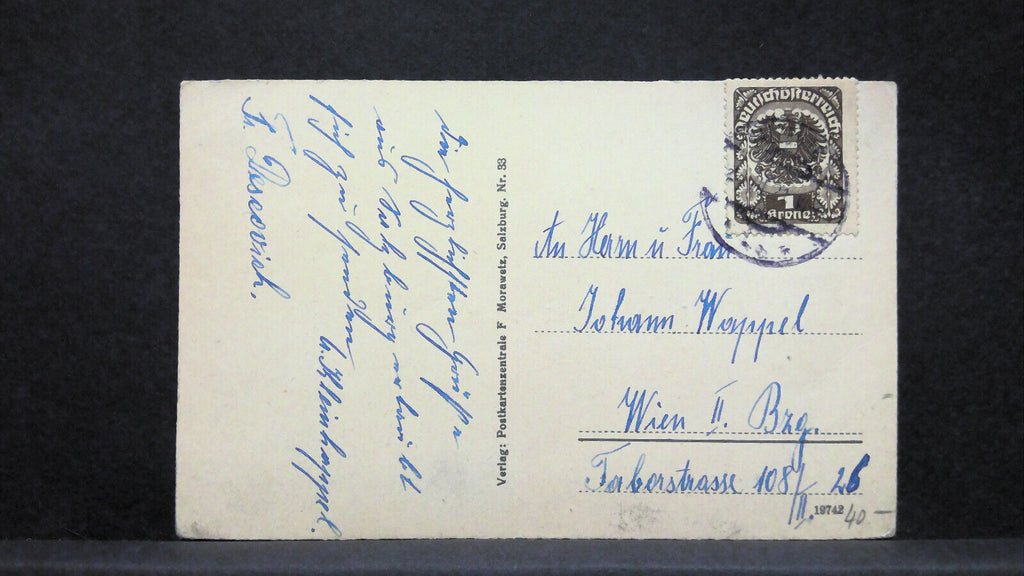 Die herzlichsten Grüße
aus Salzburg erlaubt
sich zu senden
G. Kleinhappel.
Fr. Toscovich.
Verlag: Postkartenzentrale F Morawetz, Salzburg. Nr. 33
Deutschösterreich
1
Krone
An Herrn u Frau
Johann Wappel
Wien II. Bzg.
Faberstrasse 108/26
II.
19742
40 —